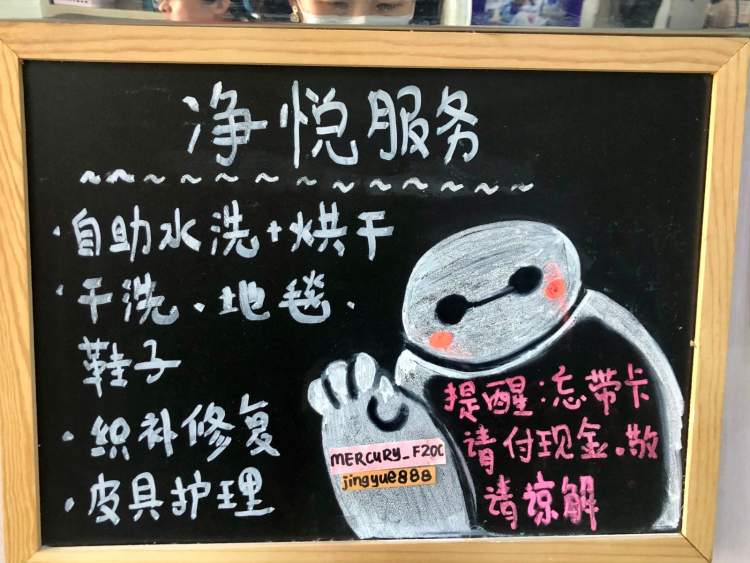 净悦服务
·自助水洗+烘干
·干洗、地毯、
鞋子
·织补修复
·皮具护理
提醒:忘带卡
请付现金。敬
请谅解
MERCURY_F20C
jingyue888